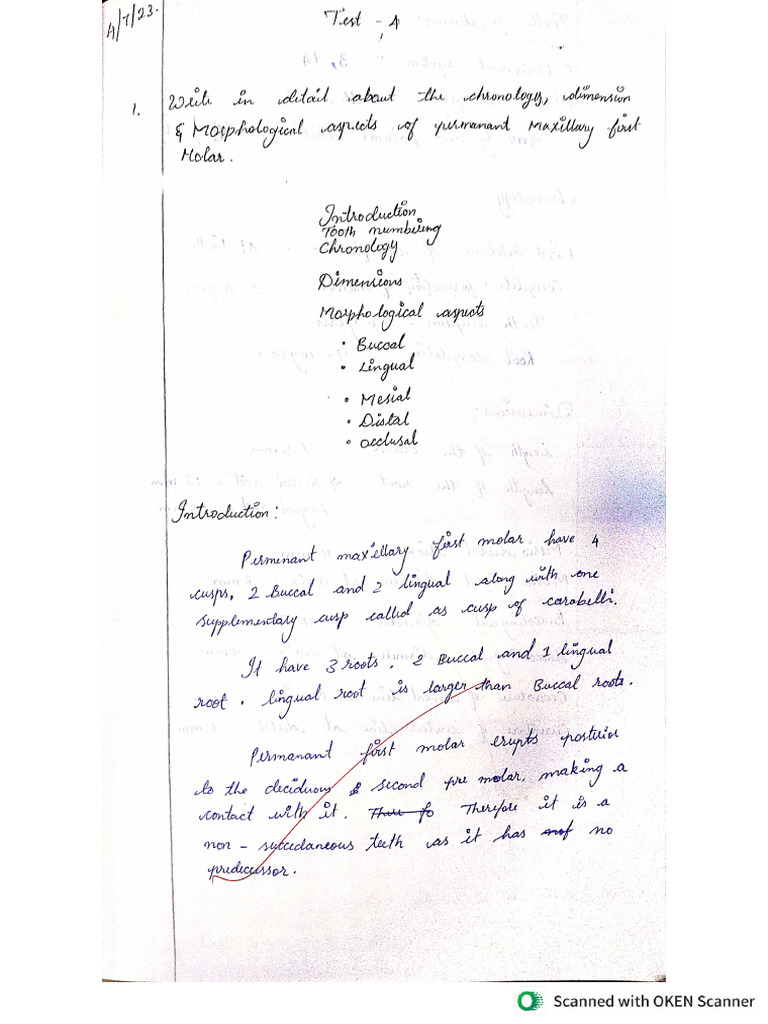 4/7/23.
Test - 4
1. Write in detail about the chronology, dimension
& Morphological aspects of permanant Maxillary first
Molar.
Introduction
Tooth numbering
Chronology
Dimensions
Morphological aspects
• Buccal
• Lingual
• Mesial
• Distal
• Occlusal
Introduction:
Permenant maxillary first molar have 4
cusps, 2 Buccal and 2 lingual along with one
supplementary cusp called as cusp of carabelli.
It have 3 roots, 2 Buccal and 1 lingual
root. lingual root is larger than Buccal roots.
Permanant first molar erupts posterior
to the deciduous second pre molar, making a
contact with it. There fo Therefore it is a
non - succedaneous teeth as it has no
predecessor.
Scanned with OKEN Scanner